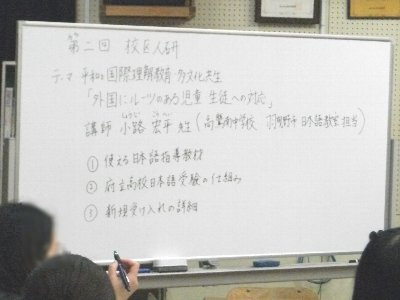 第二回 校区人研
テーマ 平和と国際理解教育・多文化共生
「外国にルーツのある児童生徒への対応」
講師 小路 宏平 先生 (高鷲南中学校 羽曳野市日本語教室担当)
① 使える日本語指導教材
② 府立高校日本語受験の仕組み
③ 新規受け入れの詳細